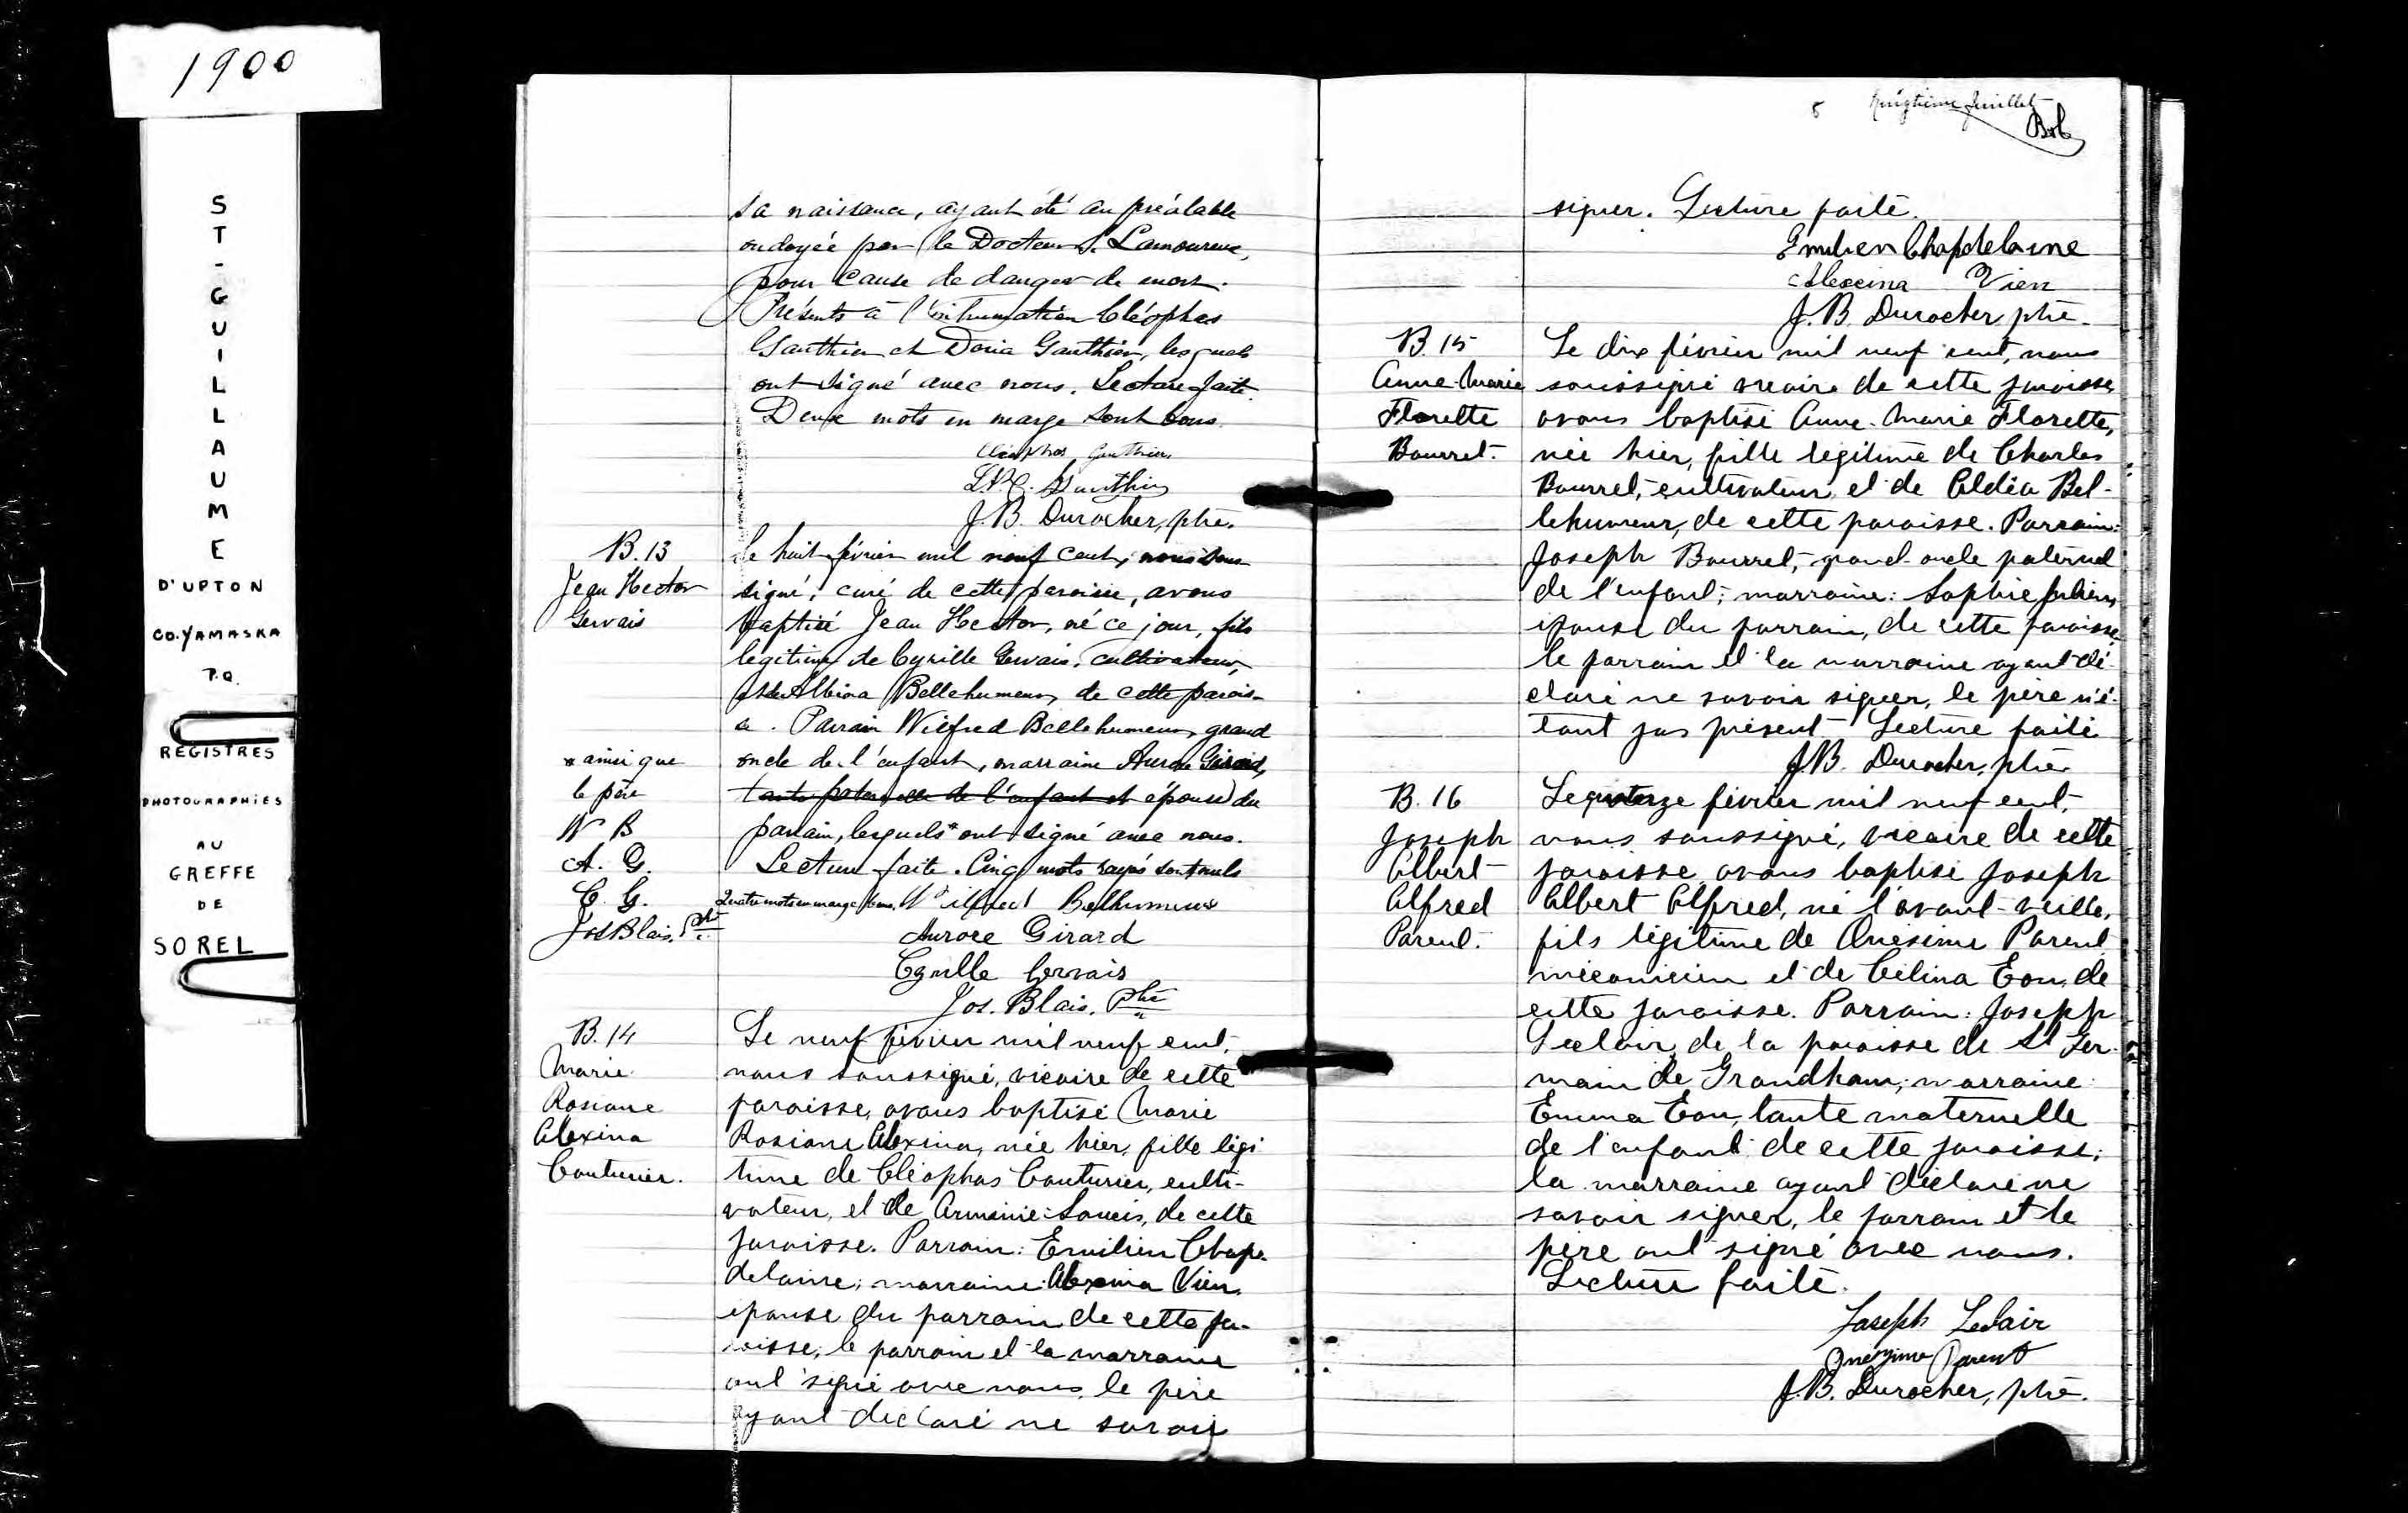 1900
ST-GUILLAUME
D'UPTON
CO. YAMASKA
P.Q.
REGISTRES
PHOTOGRAPHIÉS
AU
GREFFE
DE
SOREL
sa naissance, ayant été au préalable
ondoyée par le Docteur S. Lamoureux,
pour cause de danger de mort.
Présents à l'inhumation Cléophas
Gauthier et Doria Gauthier, lesquels
ont signé avec nous. Lecture faite.
Deux mots en marge sont bons
Cléophas Gauthier
Gauthier
J. B. Durocher, ptre.
B. 13
Jean Hector
Gervais
Le huit février mil neuf cent, nous sous
signé, curé de cette paroisse, avons
baptisé Jean Hector, né ce jour, fils
legitime de Cyrille Gervais, cultivateur,
et de Albina Bellehumeur, de cette parois-
se. Parrain Wilfred Bellehumeur, grand
oncle de l'enfant, marraine Aurore Girard,
tante paternelle de l'enfant et épouse du
parrain, lesquels* ont signé avec nous.
Lecture faite. Cinq mots rayés sont nuls
Quatre mots en marge bons. Wilfred Belhumeur
* ainsi que
le père
W B
A. G.
C. G.
Jos Blais, Ptre
Aurore Girard
Cyrille Gervais
Jos. Blais, Ptre
B. 14
Marie
Rosiane
Alexina
Couturier.
Le neuf février mil neuf cent,
nous soussigné, vicaire de cette
paroisse, avons baptisé Marie
Rosiane Alexina, née hier, fille légi
time de Cléophas Couturier, culti-
vateur, et de Arménie Saucis, de cette
paroisse. Parrain: Emilien Chape-
delaine; marraine: Alexina Vien,
épouse du parrain de cette pa-
roisse, le parrain et la marraine
ont signé avec nous, le père
ayant déclaré ne savoir
5 feuillet
signer. Lecture faite.
Emilien Chapdelaine
Alexina Vien
J. B. Durocher, ptre.
B. 15
Anne-Marie
Florette
Bourret.
Le dix février mil neuf cent, nous
soussigné vicaire de cette paroisse,
avons baptisé Anne-Marie Florette,
née hier, fille légitime de Charles
Bourret, cultivateur, et de Aldéa Bel-
lehumeur, de cette paroisse. Parrain:
Joseph Bourret, grand-oncle paternel
de l'enfant; marraine: Sophie Julien,
épouse du parrain, de cette paroisse,
le parrain et la marraine ayant dé-
claré ne savoir signer, le père n'é-
tant pas présent. Lecture faite
J. B. Durocher, ptre.
B. 16
Joseph
Albert
Alfred
Parent.
Le quatorze février mil neuf cent,
nous soussigné, vicaire de cette
paroisse avons baptisé Joseph
Albert Alfred, né l'avant-veille,
fils légitime de Onésime Parent
mécanicien et de Célina Eon, de
cette paroisse. Parrain: Joseph
Leclair, de la paroisse de St Ger-
main de Grandham; marraine:
Emma Eon, tante maternelle
de l'enfant de cette paroisse;
la marraine ayant déclaré ne
savoir signer, le parrain et le
père ont signé avec nous.
Lecture faite.
Joseph Leclair
Onézime Parent
J. B. Durocher, ptre.